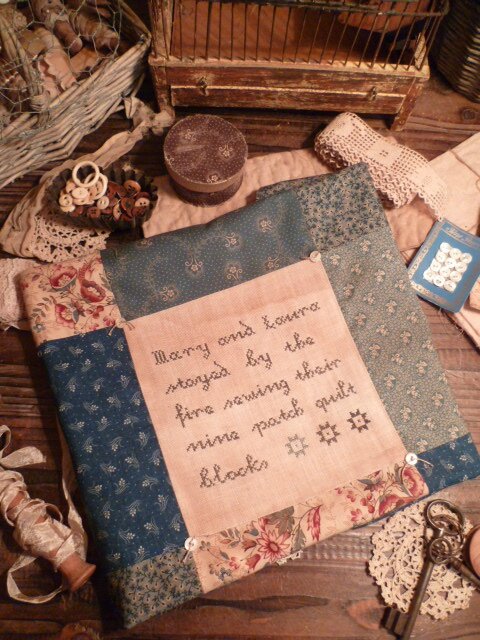 Mary and Laura
stayed by the
fire sewing their
nine patch quilt
blocks